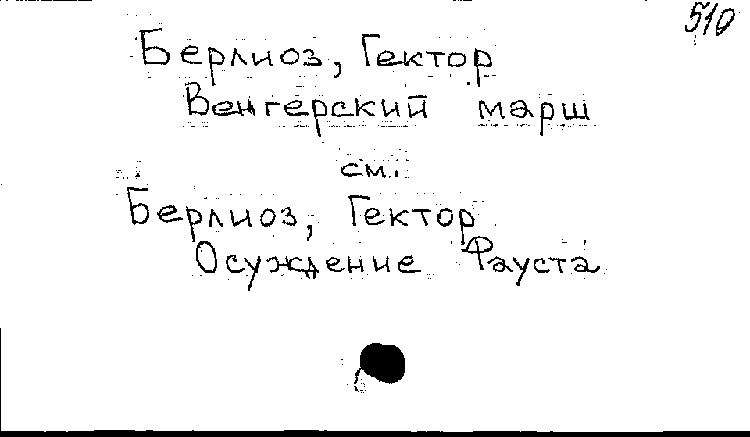 510
Берлиоз, Гектор
Венгерский марш
см.
Берлиоз, Гектор
Осуждение Фауста